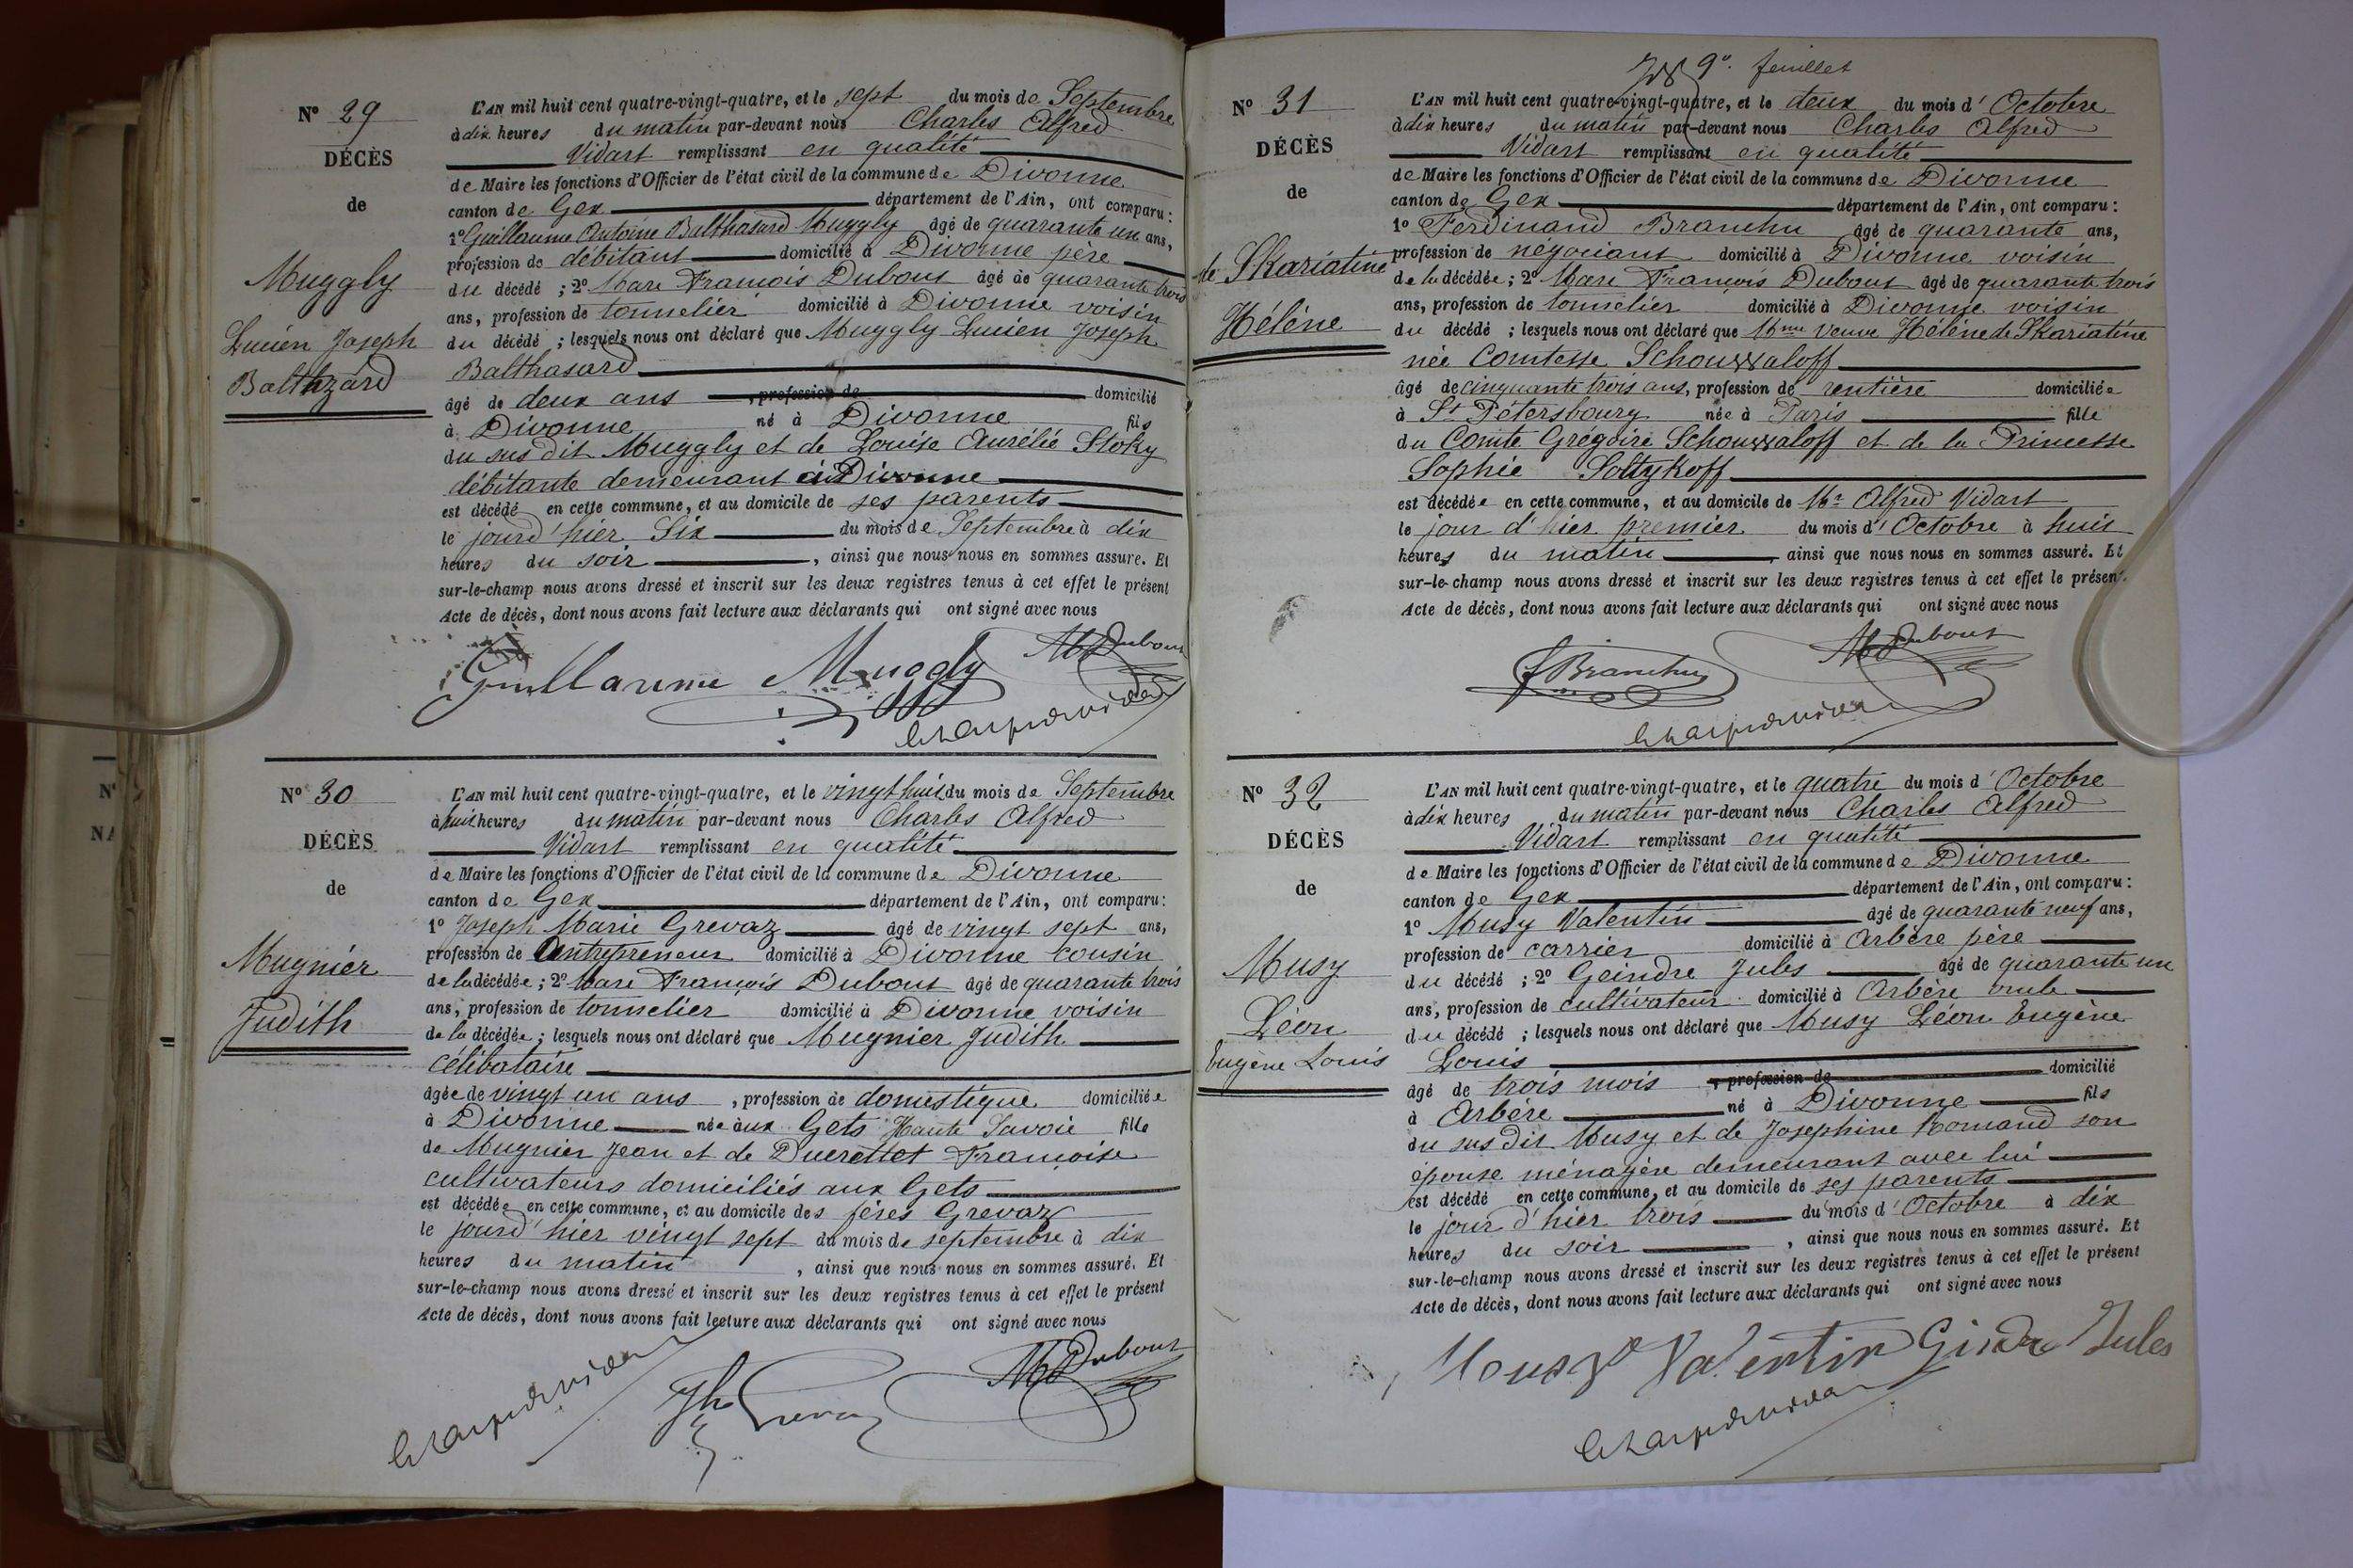 N° 29
DÉCÈS
de
Muggly
Lucien Joseph
Balthzard
L'AN mil huit cent quatre-vingt-quatre, et le sept du mois de Septembre
à dix heures du matin par-devant nous Charles Alfred
Vidart remplissant en qualité
de Maire les fonctions d'Officier de l'état civil de la commune de Divonne
canton de Gex département de l'Ain, ont comparu :
1° Guillaume Antoine Balthasard Muggly âgé de quarante un ans,
profession de débitant domicilié à Divonne père
du décédé ; 2° Marc François Dubout âgé de quarante trois
ans, profession de tonnelier domicilié à Divonne voisin
du décédé ; lesquels nous ont déclaré que Muggly Lucien Joseph
Balthasard
âgé de deux ans , profession de domicilié
à Divonne né à Divonne fils
du sus dit Muggly et de Louise Aurélie Stoky
débitante demeurant à Divonne
est décédé en cette commune, et au domicile de ses parents
le jourd'hier Six du mois de Septembre à dix
heures du soir , ainsi que nous nous en sommes assure. Et
sur-le-champ nous avons dressé et inscrit sur les deux registres tenus à cet effet le présent
Acte de décès, dont nous avons fait lecture aux déclarants qui ont signé avec nous
Guillaume Muggly MDubout
N° 30
DÉCÈS
de
Mugnier
Judith
L'AN mil huit cent quatre-vingt-quatre, et le vingt huit du mois de Septembre
à huit heures du matin par-devant nous Charles Alfred
Vidart remplissant en qualité
de Maire les fonctions d'Officier de l'état civil de la commune de Divonne
canton de Gex département de l'Ain, ont comparu :
1° Joseph Marie Grevaz âgé de vingt sept ans,
profession de Entrepreneur domicilié à Divonne cousin
de la décédée ; 2° Marc François Dubout âgé de quarante trois
ans, profession de tonnelier domicilié à Divonne voisin
de la décédée ; lesquels nous ont déclaré que Mugnier Judith
célibataire
âgée de vingt un ans , profession de domestique domiciliée
à Divonne née aux Gets Haute Savoie fille
de Mugnier Jean et de Duerettet Françoise
cultivateurs domiciliés aux Gets
est décédée en cette commune, et au domicile des fères Grevaz
le jourd'hier vingt sept du mois de septembre à dix
heures du matin , ainsi que nous nous en sommes assuré. Et
sur-le-champ nous avons dressé et inscrit sur les deux registres tenus à cet effet le présent
Acte de décès, dont nous avons fait lecture aux déclarants qui ont signé avec nous
MDubout
9e feuillet
N° 31
DÉCÈS
de
de Skariatine
Hélène
L'AN mil huit cent quatre-vingt-quatre, et le deux du mois d'Octobre
à dix heures du matin par-devant nous Charles Alfred
Vidart remplissant en qualité
de Maire les fonctions d'Officier de l'état civil de la commune de Divonne
canton de Gex département de l'Ain, ont comparu :
1° Ferdinand Branchu âgé de quarante ans,
profession de négociant domicilié à Divonne voisin
de la décédée ; 2° Marc François Dubout âgé de quarante trois
ans, profession de tonnelier domicilié à Divonne voisin
du décédé ; lesquels nous ont déclaré que Mme veuve Hélène de Skariatine
née Comtesse Schouwaloff
âgé de cinquante trois ans, profession de rentière domiciliée
à St Pétersbourg née à Paris fille
du Comte Grégoire Schouwaloff et de la Princesse
Sophie Soltykoff
est décédée en cette commune, et au domicile de Mr Alfred Vidart
le jour d'hier premier du mois d'Octobre à huit
heures du matin ainsi que nous nous en sommes assuré. Et
sur-le-champ nous avons dressé et inscrit sur les deux registres tenus à cet effet le présent
Acte de décès, dont nous avons fait lecture aux déclarants qui ont signé avec nous
fBranchu MDubout
N° 32
DÉCÈS
de
Musy
Léon
Eugène Louis
L'AN mil huit cent quatre-vingt-quatre, et le quatre du mois d'Octobre
à dix heures du matin par-devant nous Charles Alfred
Vidart remplissant en qualité
de Maire les fonctions d'Officier de l'état civil de la commune de Divonne
canton de Gex département de l'Ain, ont comparu :
1° Musy Valentin âgé de quarante neuf ans,
profession de carrier domicilié à Arbère père
du décédé ; 2° Geindre Jules âgé de quarante un
ans, profession de cultivateur domicilié à Arbère oncle
du décédé ; lesquels nous ont déclaré que Musy Léon Eugène
Louis
âgé de trois mois , profession de domicilié
à Arbère né à Divonne fils
du sus dit Musy et de Josephine Romand son
épouse ménagère demeurant avec lui
est décédé en cette commune, et au domicile de ses parents
le jour d'hier trois du mois d'Octobre à dix
heures du soir , ainsi que nous nous en sommes assuré. Et
sur-le-champ nous avons dressé et inscrit sur les deux registres tenus à cet effet le présent
Acte de décès, dont nous avons fait lecture aux déclarants qui ont signé avec nous
Valentin Jules